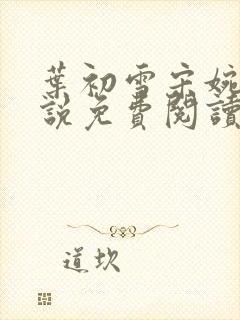 葉初雪宋婉
說免費閱讀
道坎